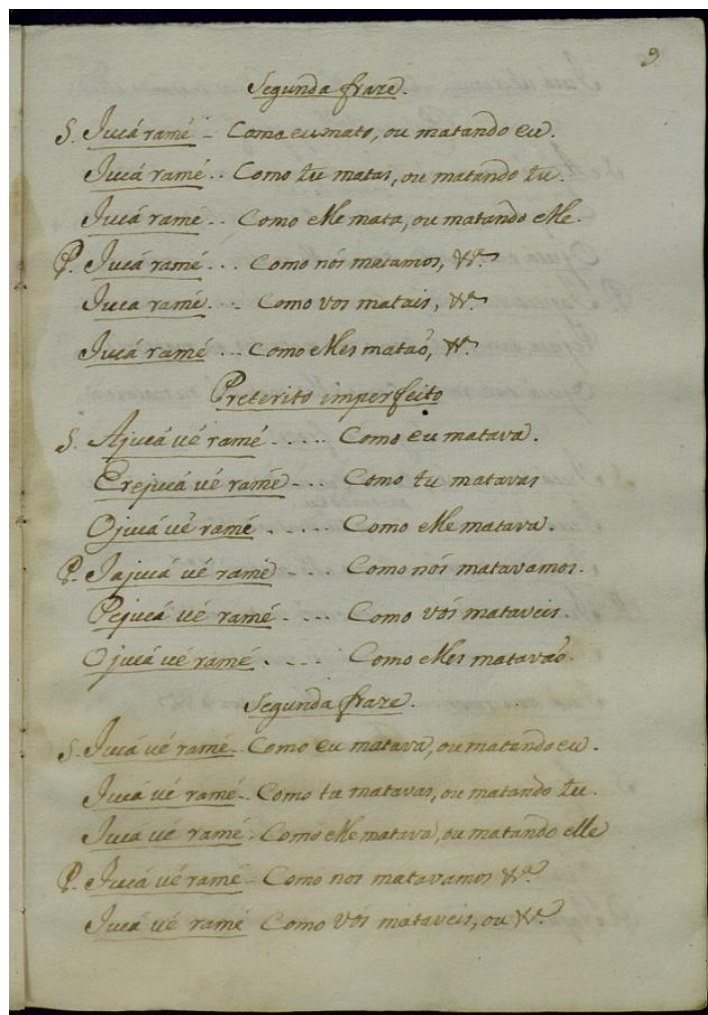 9
Segunda fraze.
S. Jucá ramé - Como eu mato, ou matando eu.
Jucá ramé.. Como tu matas, ou matando tu.
Jucá ramé.. Como elle mata, ou matando elle.
P. Jucá ramé... Como nós matamos, &ª.
Juca ramé... Como vos matais, &ª.
Jucá ramé... Como elles mataõ, &ª.
Preterito imperfeito
S. Ajucá ué ramé..... Como eu matava.
Erejucá ué ramé-... Como tu matavas
Ojucá ué ramé..... Como elle matava.
P. Jajucá ué ramé-... Como nós matavamos.
Pejucá ué ramé-... Como vós mataveis.
Ojucá ué ramé.... Como elles matavaõ.
Segunda fraze.
S. Jucá ué ramé.. Como eu matava, ou matando eu.
Jucá ué ramé.. Como tu matavas, ou matando tu.
Jucá ué ramé. Como elle matava, ou matando elle
P. Jucá ué ramé- Como nos matavamos &ª.
Jucá ué ramé Como vós mataveis, ou &ª.